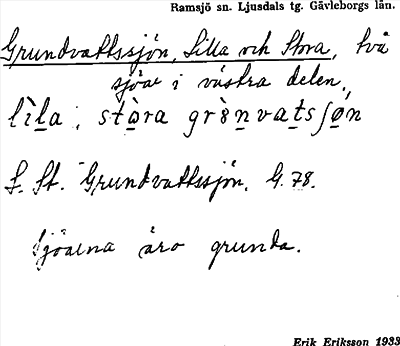 Ramsjö sn. Ljusdals tg. Gävleborgs län.
Grundvattssjön, Lilla och Stora, två
sjöar i västra delen,
lìla, stòra grènvatsʃǿn
L. St. Grundvattssjön, G. 78.
Sjöarna äro grunda.
Erik Eriksson 1933